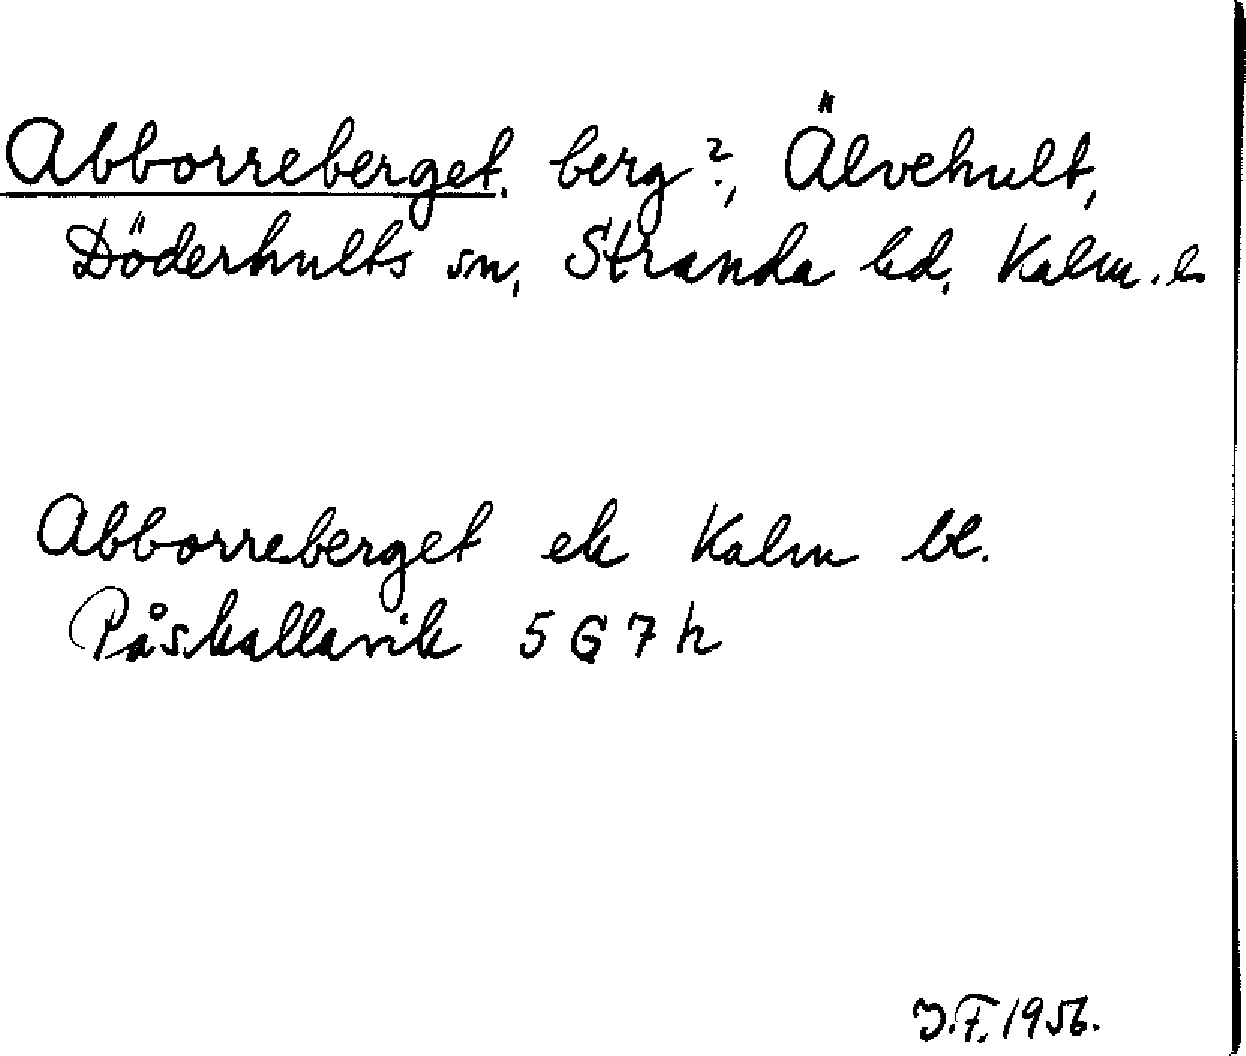 Abborreberget. berg?, Älvehult,
Döderhults sn, Stranda hd, Kalm. l.
Abborreberget ek Kalm bl.
Påskallavik 5 G 7 h
J.F. 1956.